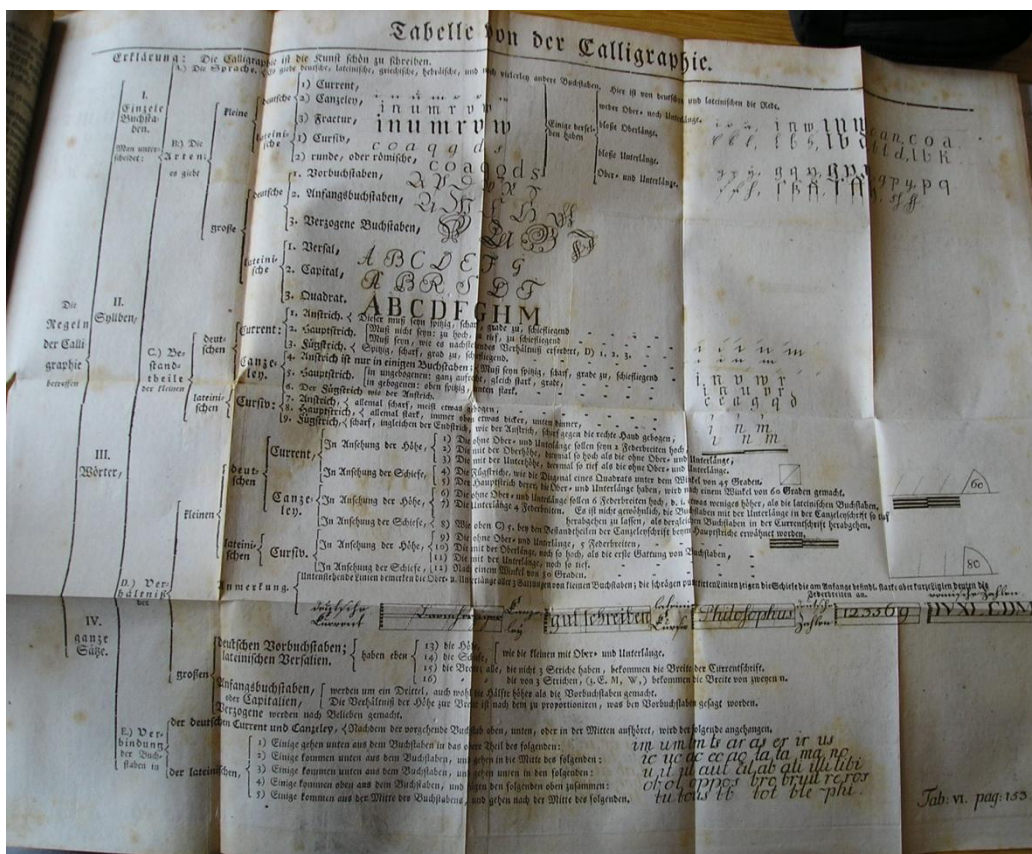 Tabelle von der Calligraphie.
Erklärung: Die Calligraphie ist die Kunst schön zu schreiben.
A.) Die Sprache. Es giebt deutsche, lateinische, griechische, hebräische, und noch vielerley andere Buchstaben. Hier ist von deutschen und lateinischen die Rede.
Die Regeln der Calligraphie betreffen
I. Einzele Buchstaben.
II. Sylben,
III. Wörter,
IV. ganze Sätze.
Man unterscheidet:
B.) Die Arten: es giebt
kleine
deutsche
1) Current,
2) Canzeley,
i n u m r v w
3) Fractur,
i n u m r v w
lateinische
1) Cursiv,
c o a q g d s
2) runde, oder römische,
c o a g q d s
Einige derselben haben
weder Ober- noch Unterlänge.
bloße Oberlänge.
bloße Unterlänge.
Ober- und Unterlänge.
große
deutsche
1. Vorbuchstaben,
2. Anfangsbuchstaben,
3. Verzogene Buchstaben,
lateinische
1. Versal,
A B C D E F G
2. Capital,
A B R S D T
3. Quadrat.
A B C D F G H M
C.) Bestandtheile der kleinen
deutschen
Current:
1. Anstrich. Dieser muß seyn spitzig, scharf, grade zu, schiefliegend
2. Hauptstrich. Muß nicht seyn: zu hoch, zu tief, zu schiefliegend
Muß seyn, wie es nachstehendes Verhältniß erfordert, D) 1, 2, 3,
3. Fügstrich. Spitzig, scharf, grad zu, schiefliegend.
Canzeley.
4. Anstrich ist nur in einigen Buchstaben; Muß seyn spitzig, scharf, grade zu, schiefliegend
5. Hauptstrich. in ungebogenen: ganz aufrecht, gleich stark, grade,
in gebogenen: oben spitzig, unten stark.
6. Der Fügstrich wie der Anstrich.
lateinischen
Cursiv:
7. Anstrich, allemal scharf, meist etwas gebogen,
8. Hauptstrich, allemal stark, immer oben etwas dicker, unten dünner,
9. Fügstrich, scharf, ingleichen der Endstrich, wie der Anstrich, scharf gegen die rechte Hand gebogen,
i n v w r
i n u v r d
c e a g q d
i n m
i n m
D.) Verhältniß der
kleinen
deutschen
Current,
In Ansehung der Höhe,
1) Die ohne Ober- und Unterlänge sollen seyn 2 Federbreiten hoch,
2) Die mit der Oberhöhe, dreymal so hoch als die ohne Ober- und Unterlänge,
3) Die mit der Unterhöhe, dreymal so tief als die ohne Ober- und Unterlänge.
In Ansehung der Schiefe,
4) Die Fügstriche, wie die Diagonal eines Quadrats unter dem Winkel von 45 Graden.
5) Der Hauptstrich derer, die Ober- und Unterlänge haben, wird nach einem Winkel von 60 Graden gemacht.
60
Canzeley.
In Ansehung der Höhe,
6) Die ohne Ober- und Unterlänge sollen 6 Federbreiten hoch, d. i. etwas weniges höher, als die lateinischen Buchstaben.
7) Die Unterlänge 4 Federbreiten. Es ist nicht gewöhnlich, die Buchstaben mit der Unterlänge in der Canzeleyschrift so tief herabgehen zu lassen, als dergleichen Buchstaben in der Currentschrift herabgehen.
In Ansehung der Schiefe,
8) Wie oben C) 5. bey den Bestandtheilen der Canzeleyschrift beym Hauptstriche erwähnt worden.
lateinischen
Cursiv.
In Ansehung der Höhe,
9) Die ohne Ober- und Unterlänge, 5 Federbreiten,
10) Die mit der Oberlänge, noch so hoch, als die erste Gattung von Buchstaben,
11) Die mit der Unterlänge, noch so tief.
In Ansehung der Schiefe,
12) Nach einem Winkel von 80 Graden.
80
Anmerkung. Untenstehende Linien bemerken die Ober- u. Unterlänge aller 3 Gattungen von kleinen Buchstaben; die schrägen punktirten Linien zeigen die Schiefe
Federbreiten an.
deutsche Current
Canzeley
gut schreiben
Philosophus
Zahlen
römische Zahlen
großen
deutschen Vorbuchstaben;
lateinischen Versalien.
haben eben
13) die Höhe,
14) die Schiefe,
wie die kleinen mit Ober- und Unterlänge.
15) die Breite; alle, die nicht 3 Striche haben, bekommen die Breite der Currentschrift.
16) die von 3 Strichen, (z. E. M, W,) bekommen die Breite von zweyen n.
Anfangsbuchstaben, oder Capitalien,
werden um ein Drittel, auch wohl die Hälfte höher als die Vorbuchstaben gemacht.
Die Verhältniß der Höhe zur Breite ist nach dem zu proportioniren, was bey Vorbuchstaben gesagt worden.
Verzogene werden nach Belieben gemacht.
E.) Verbindung der Buchstaben in
der deutschen Current und Canzeley, Nachdem der vorgehende Buchstab oben, unten, oder in der Mitten aufhöret, wird der folgende angehangen.
der lateinischen,
1) Einige gehen unten aus dem Buchstaben in das obere Theil des folgenden:
im um
ar as er ir us
2) Einige kommen unten aus dem Buchstaben, und gehen in die Mitte des folgenden:
ic uc ac cc ao ta la ma no
3) Einige kommen unten aus dem Buchstaben, und gehen unten in den folgenden:
4) Einige kommen oben aus dem Buchstaben, und fügen den folgenden oben zusammen:
5) Einige kommen aus der Mitte des Buchstabens, und gehen nach der Mitte des folgenden.
tot ble phi.
Tab: VI. pag: 153